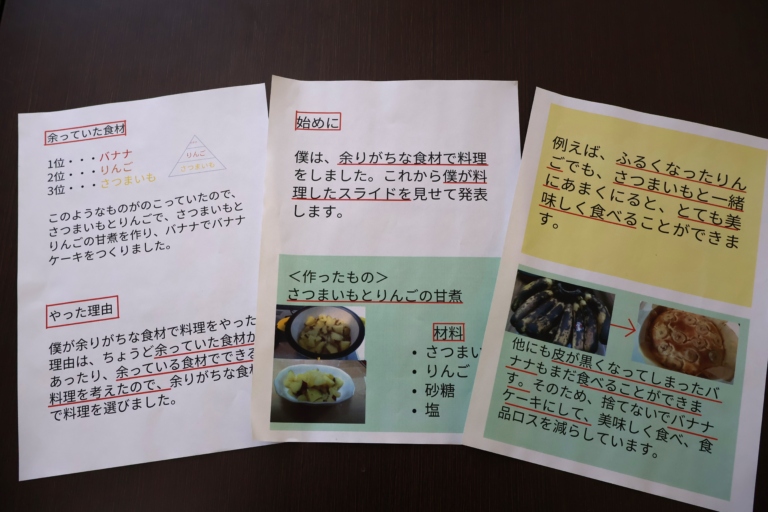 余っていた食材
1位・・・バナナ
2位・・・りんご
3位・・・さつまいも
りんご
さつまいも
このようなものがのこっていたので、
さつまいもとりんごで、さつまいもと
りんごの甘煮を作り、バナナでバナナ
ケーキをつくりました。
やった理由
僕が余りがちな食材で料理をやった
理由は、ちょうど余っていた食材が
あったり、余っている食材でできる
料理を考えたので、余りがちな食材
で料理を選びました。
始めに
僕は、余りがちな食材で料理
をしました。これから僕が料
理したスライドを見せて発表
します。
<作ったもの>
さつまいもとりんごの甘煮
材料
・さつまい
・りんご
・砂糖
・塩
例えば、ふるくなったりん
ごでも、さつまいもと一緒
にあまくにると、とても美
味しく食べることができま
す。
他にも皮が黒くなってしまったバ
ナナもまだ食べることができま
す。そのため、捨てないでバナナ
ケーキにして、美味しく食べ、食
品ロスを減らしています。